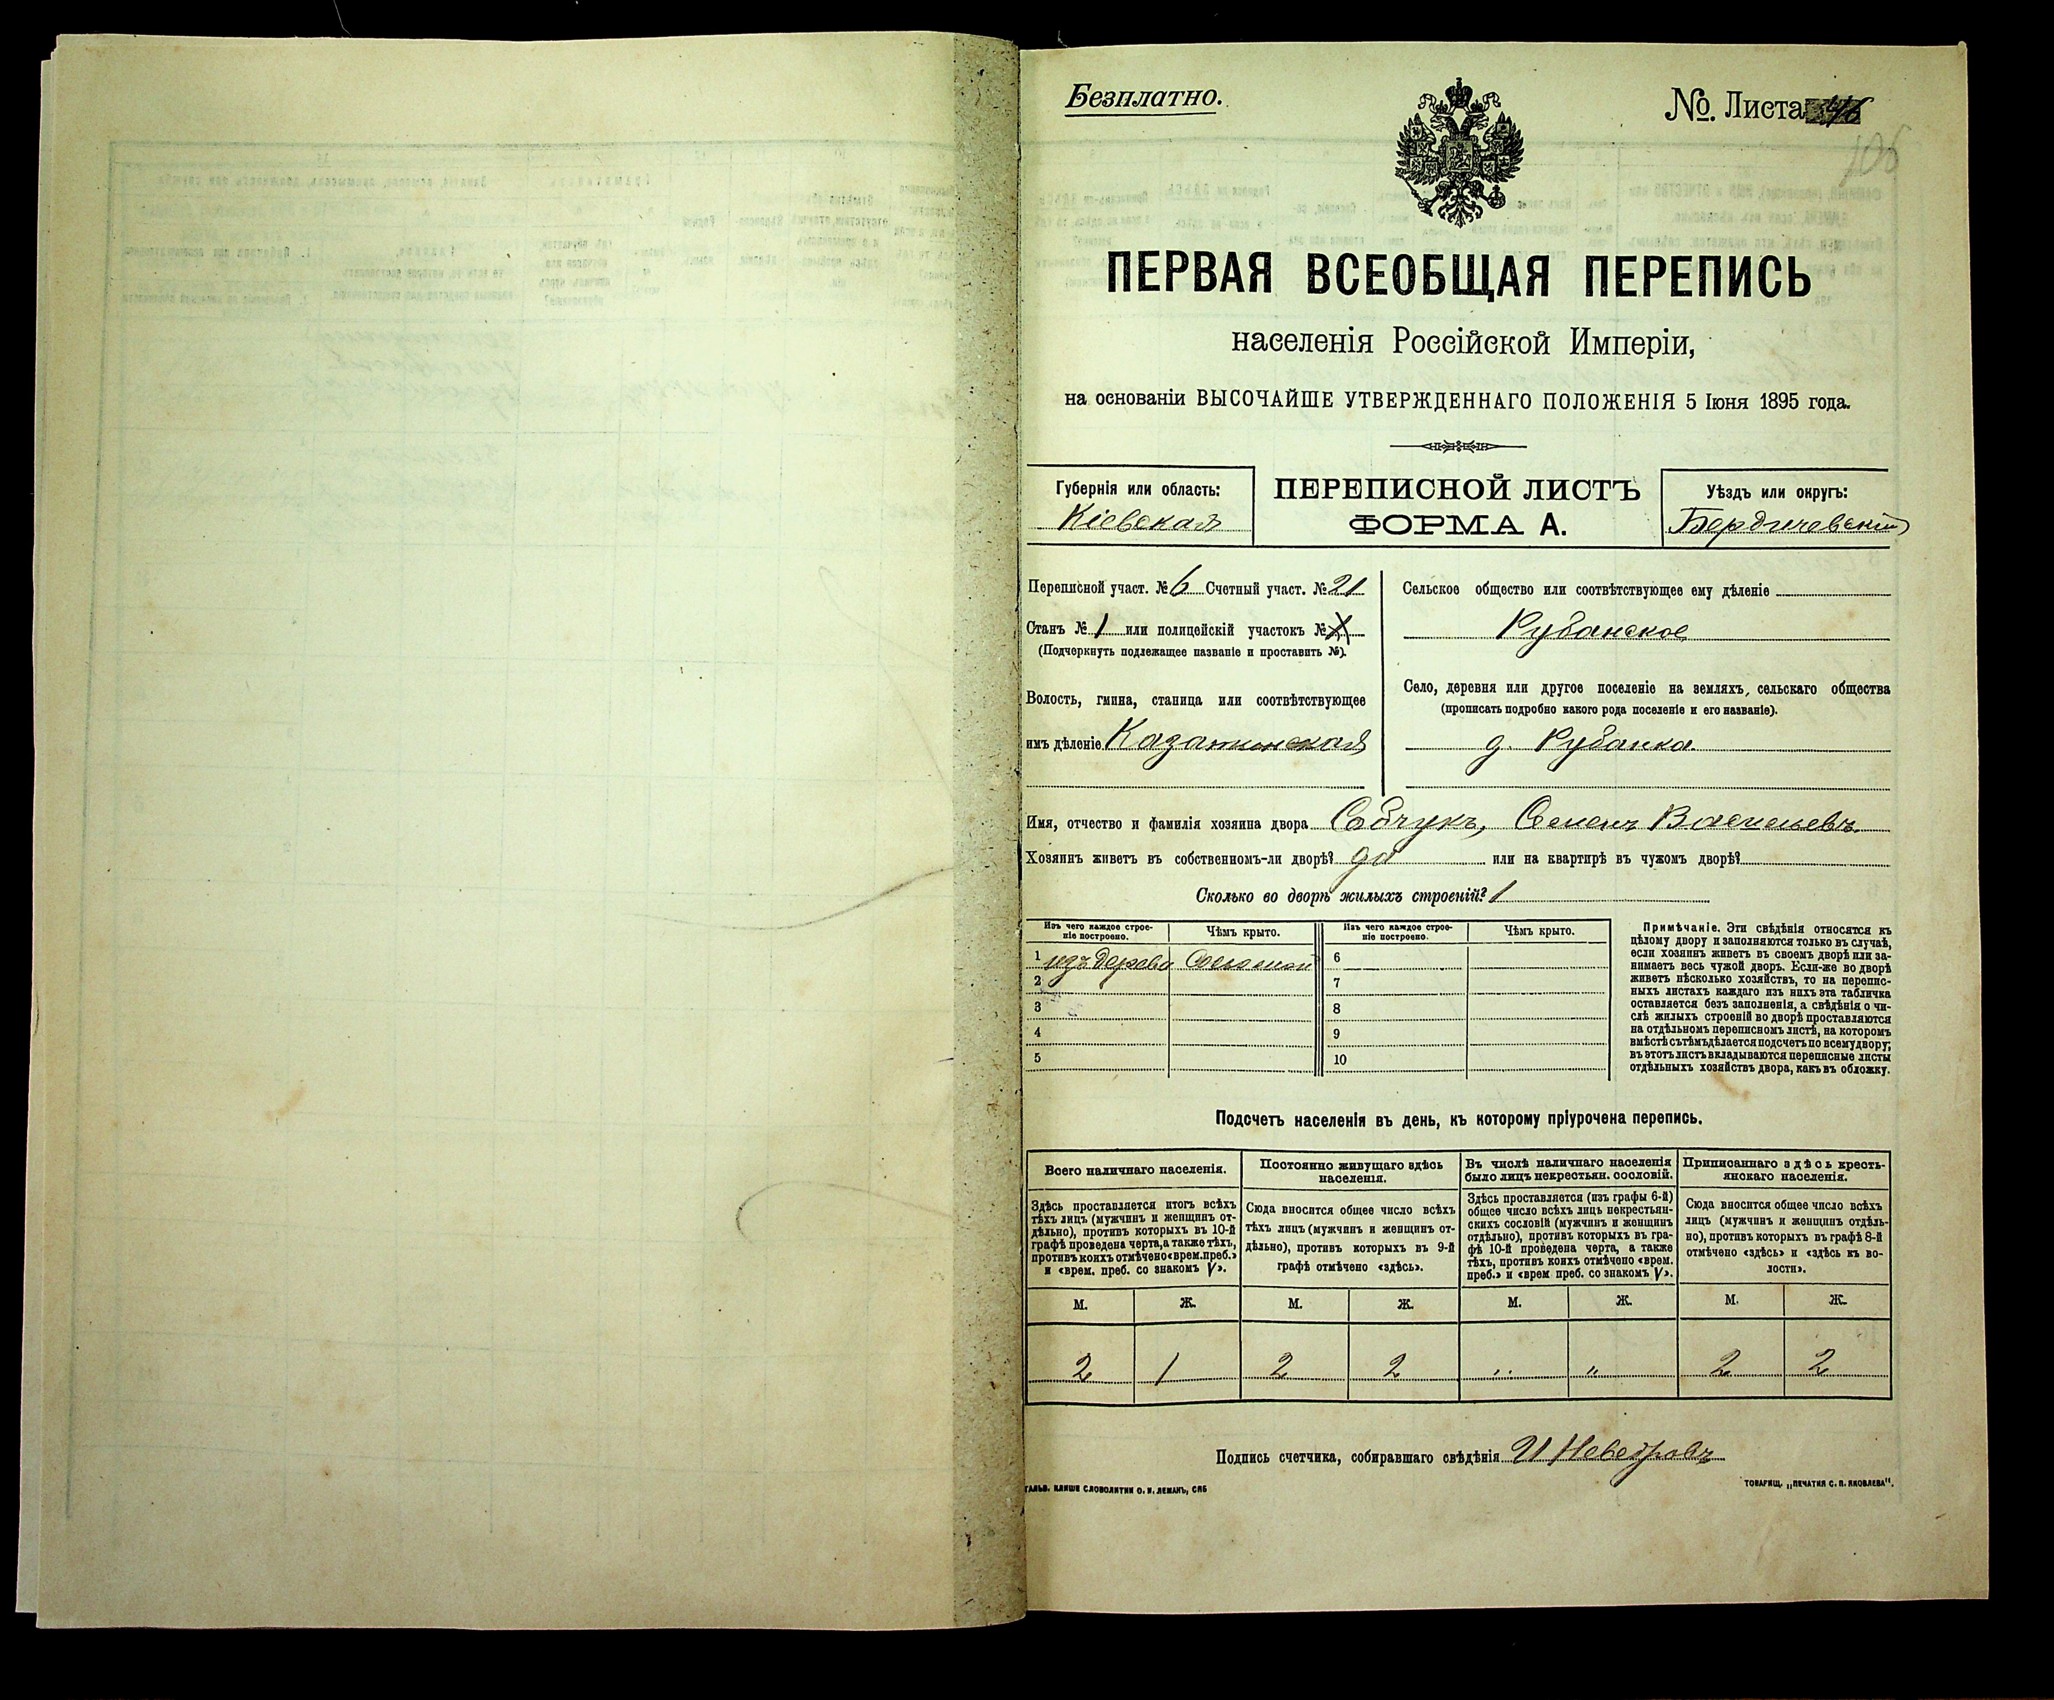 Безплатно.
№. Листа 46
106
ПЕРВАЯ ВСЕОБЩАЯ ПЕРЕПИСЬ
населенія Россійской Имперіи,
на основаніи ВЫСОЧАЙШЕ УТВЕРЖДЕННАГО ПОЛОЖЕНІЯ 5 Іюня 1895 года.
Губернія или область:
Кіевская
ПЕРЕПИСНОЙ ЛИСТЪ
ФОРМА А.
Уѣздъ или округъ:
Бердичевскій
Переписной участ. № 6 Счетный участ. № 21
Станъ № 1 или полицейскій участокъ №
(Подчеркнуть подлежащее названіе и проставить №).
Волость, гмина, станица или соотвѣтствующее
имъ дѣленіе Казатинская
Сельское общество или соотвѣтствующее ему дѣленіе
Рубанское
Село, деревня или другое поселеніе на земляхъ, сельскаго общества
(прописать подробно какого рода поселеніе и его названіе).
д. Рубанка
Имя, отчество и фамилія хозяина двора Собчукъ, Семенъ Васильевъ
Хозяинъ живетъ въ собственномъ-ли дворѣ? да или на квартирѣ въ чужомъ дворѣ?
Сколько во дворѣ жилыхъ строеній? 1
Изъ чего каждое строе-
ніе построено.
Чѣмъ крыто.
Изъ чего каждое строе-
ніе построено.
Чѣмъ крыто.
1 изъ дерева Соломой 6
2 7
3 8
4 9
5 10
Примѣчаніе. Эти свѣдѣнія относятся къ
цѣлому двору и заполняются только въ случаѣ,
если хозяинъ живетъ въ своемъ дворѣ или за-
нимаетъ весь чужой дворъ. Если-же во дворѣ
живетъ нѣсколько хозяйствъ, то на перепис-
ныхъ листахъ каждаго изъ нихъ эта табличка
оставляется безъ заполненія, а свѣдѣнія о чи-
слѣ жилыхъ строеній во дворѣ проставляются
на отдѣльномъ переписномъ листѣ, на которомъ
вмѣстѣ съ тѣмъ дѣлается подсчетъ по всему двору;
въ этотъ листъ вкладываются переписные листы
отдѣльныхъ хозяйствъ двора, какъ въ обложку.
Подсчетъ населенія въ день, къ которому пріурочена перепись.
Всего наличнаго населенія.
Здѣсь проставляется итогъ всѣхъ
тѣхъ лицъ (мужчинъ и женщинъ от-
дѣльно), противъ которыхъ въ 10-й
графѣ проведена черта, а также тѣхъ,
противъ коихъ отмѣчено «врем. преб.»
и «врем. преб. со знакомъ V».
Постоянно живущаго здѣсь
населенія.
Сюда вносится общее число всѣхъ
тѣхъ лицъ (мужчинъ и женщинъ от-
дѣльно), противъ которыхъ въ 9-й
графѣ отмѣчено «здѣсь».
Въ числѣ наличнаго населенія
было лицъ некрестьян. сословій.
Здѣсь проставляется (изъ графы 6-й)
общее число всѣхъ лицъ некрестьян-
скихъ сословій (мужчинъ и женщинъ
отдѣльно), противъ которыхъ въ гра-
фѣ 10-й проведена черта, а также
тѣхъ, противъ коихъ отмѣчено «врем.
преб.» и «врем преб. со знакомъ V».
Приписаннаго здѣсь кресть-
янскаго населенія.
Сюда вносится общее число всѣхъ
лицъ (мужчинъ и женщинъ отдѣль-
но), противъ которыхъ въ графѣ 8-й
отмѣчено «здѣсь» и «здѣсь къ во-
лости».
М. Ж. М. Ж. М. Ж. М. Ж.
2 1 2 2 „ „ 2 2
Подпись счетчика, собиравшаго свѣдѣнія И Неведровъ
ГАЛЬВ. КЛИШЕ СЛОВОЛИТНИ О. И. ЛЕМАНЪ, СПБ
ТОВАРИЩ. „ПЕЧАТНЯ С. П. ЯКОВЛЕВА".